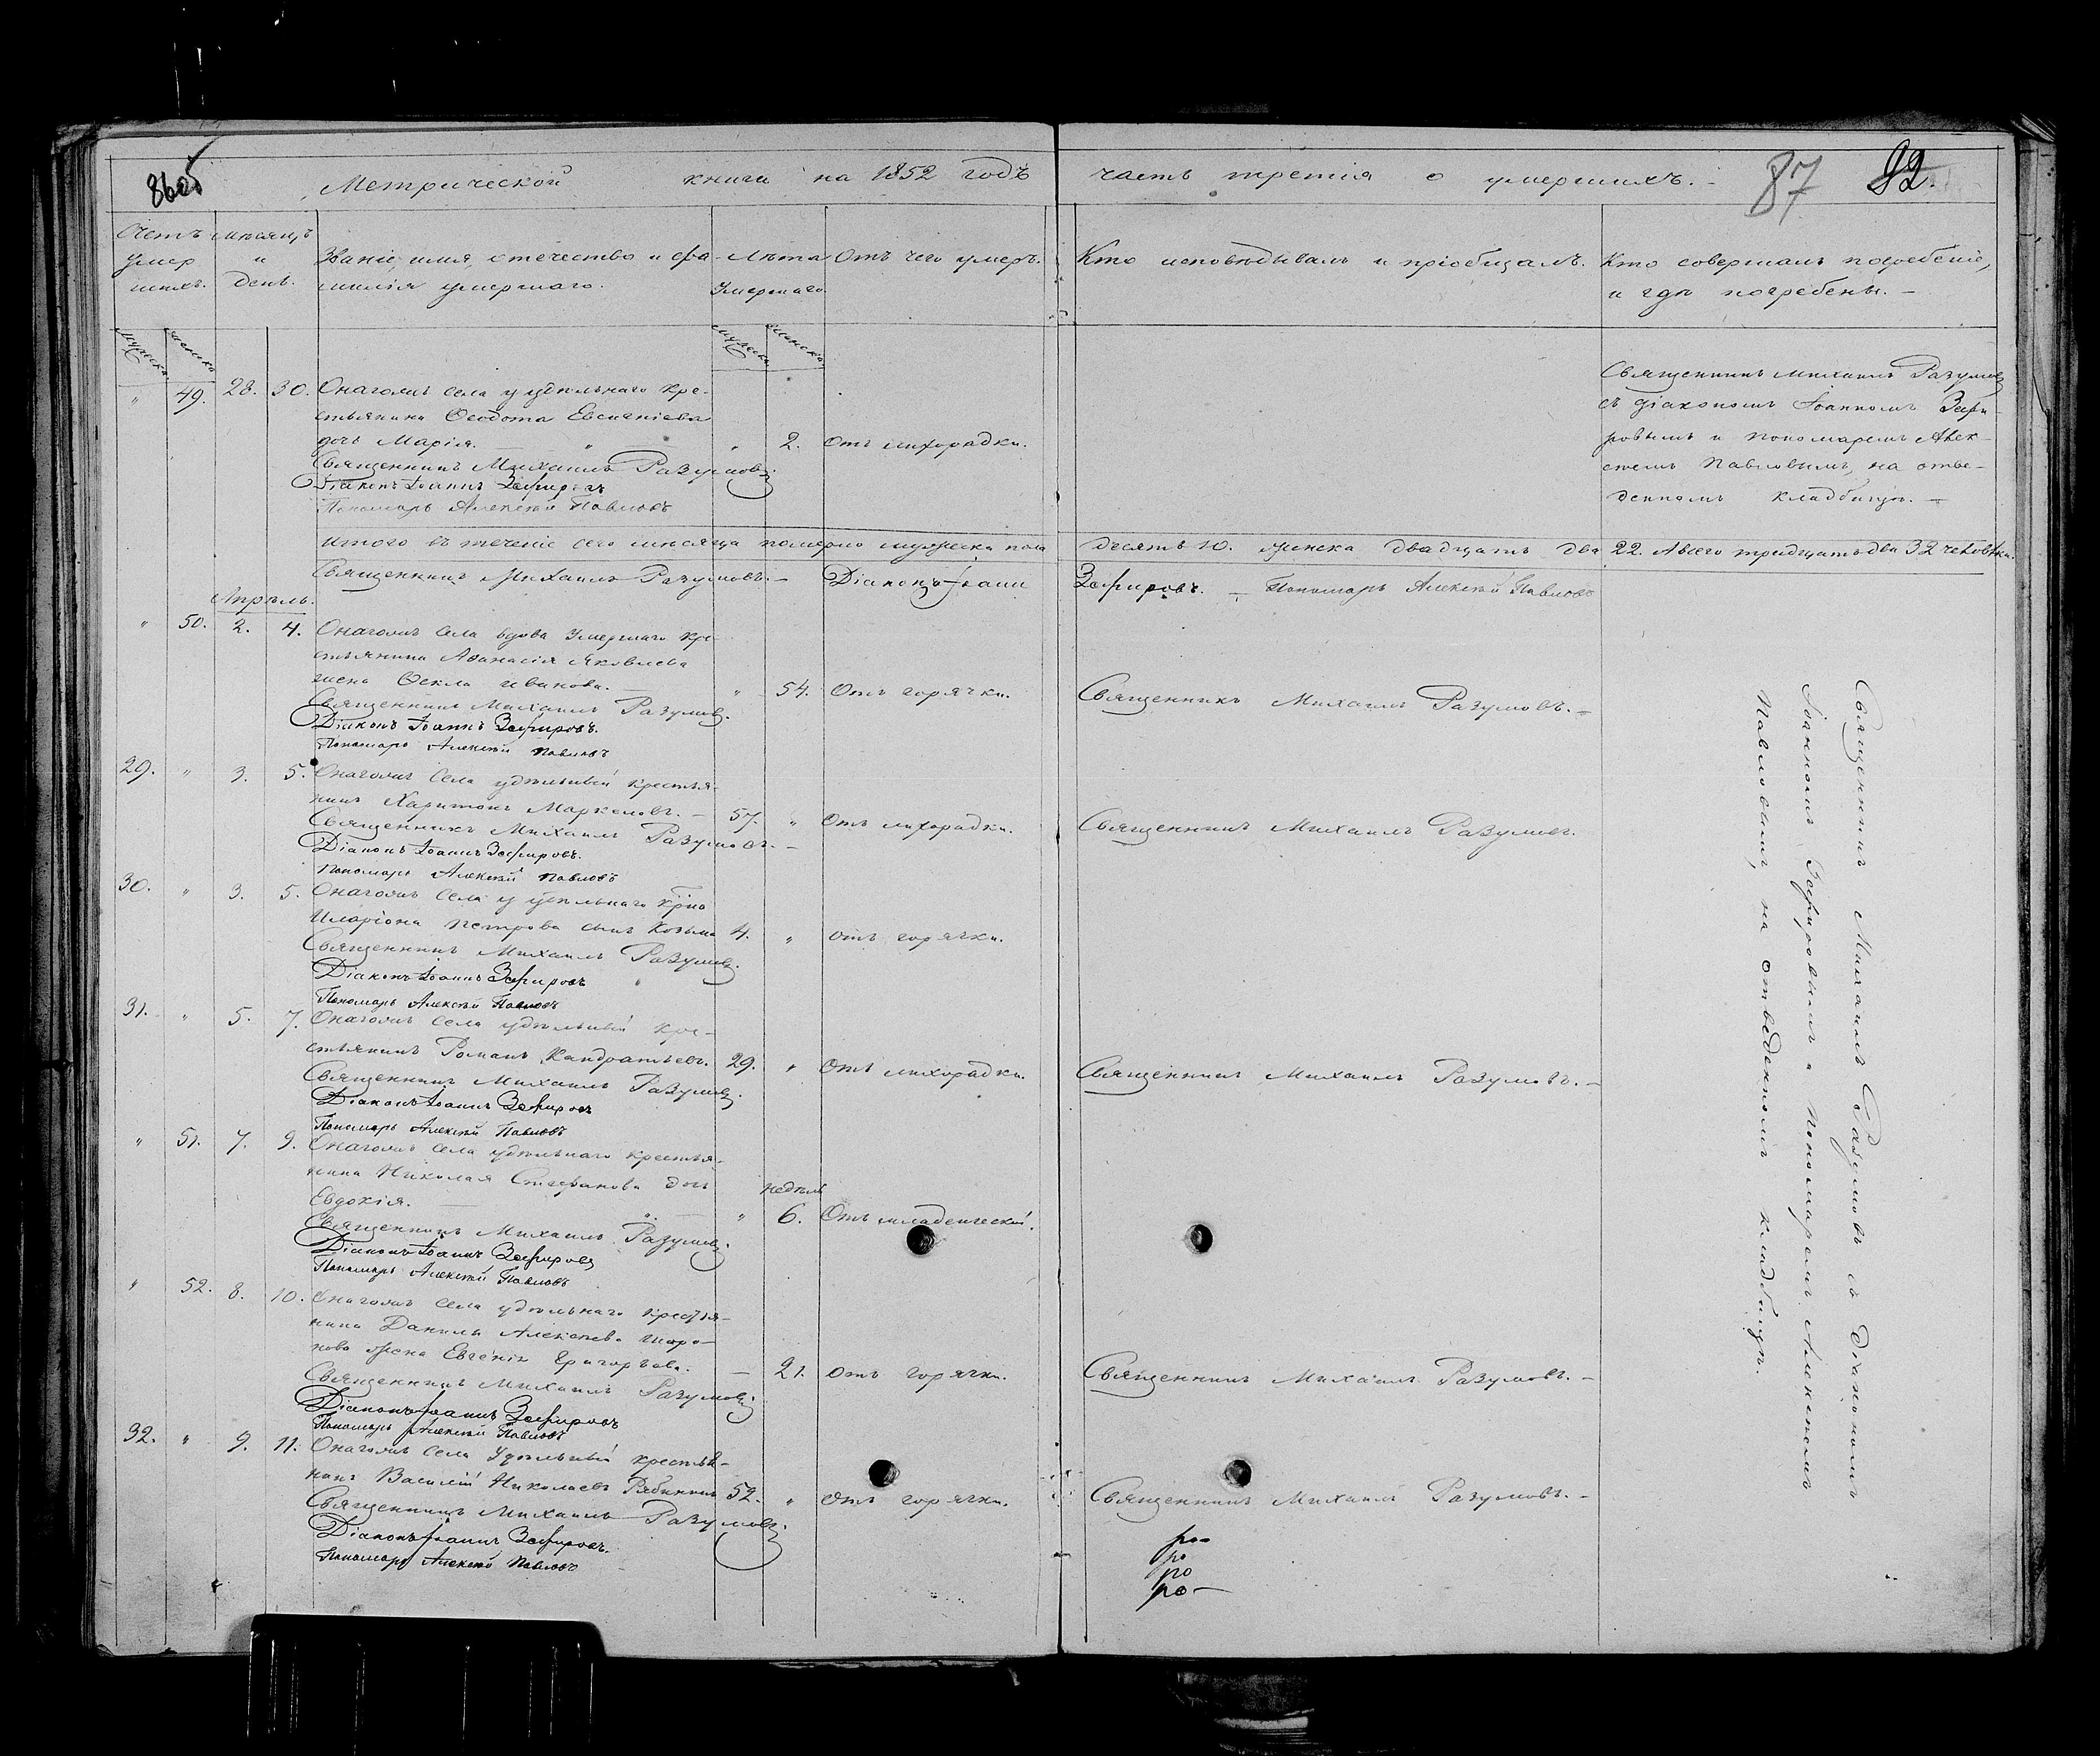 860б
Метрической книги на 1852 годъ часть третія о умершихъ.
87 92
Счетъ умершихъ.
мѣсяцъ и день.
Званіе, имя, отечество и фамилія умершаго.
Лѣта Умершаго.
Отъ чего умеръ.
Кто исповѣдывалъ и пріобщалъ.
Кто совершалъ погребеніе,
и гдѣ погребены. —
мужеска
женска
мужеска
женска
" 49. 28. 30. Онагожъ села у удѣльнаго кре-
стьянина Ѳеодота Евсигніева
дочь Марія. — " — " 2. Отъ лихорадки.
Священникъ Михаилъ Разумовъ.
Діаконъ Іоаннъ Зефировъ
Пономарь Алексѣй Павловъ
Священникъ Михаилъ Разумовъ
съ діакономъ Іоанномъ Зефи-
ровымъ и пономаремъ Алек-
сѣемъ Павловымъ, на отве-
денномъ кладбищѣ. —
Итого въ теченіе сего мѣсяца померло мужеска пола десять 10. женска двадцать два 22. А всего тридцать два 32 человѣка.
Священникъ Михаилъ Разумовъ. — Діаконъ Іоаннъ Зефировъ. — Пономарь Алексѣй Павловъ
Апрѣль.
" 50. 2. 4. Онагожъ села вдова умершаго кре-
стьянина Аѳанасія Яковлева
жена Ѳекла Иванова. — " 54. Отъ горячки. Священникъ Михаилъ Разумовъ. —
Священникъ Михаилъ Разумовъ.
Діаконъ Іоаннъ Зефировъ.
Пономарь Алексѣй Павловъ
29. " 3. 5. Онагожъ села удѣльный крестья-
нинъ Харитонъ Маркеловъ. — 57. " Отъ лихорадки. Священникъ Михаилъ Разумовъ.
Священникъ Михаилъ Разумовъ. —
Діаконъ Іоаннъ Зефировъ.
Пономарь Алексѣй Павловъ
30. " 3. 5. Онагожъ села у удѣльнаго кр-на
Иларіона Петрова сынъ Козьма 4. " Отъ горячки.
Священникъ Михаилъ Разумовъ.
Діаконъ Іоаннъ Зефировъ
Пономарь Алексѣй Павловъ
31. " 5. 7. Онагожъ села удѣльный кре-
стьянинъ Романъ Кандратьевъ. 29. " Отъ лихорадки. Священникъ Михаилъ Разумовъ. —
Священникъ Михаилъ Разумовъ.
Діаконъ Іоаннъ Зефировъ
Пономарь Алексѣй Павловъ
" 51. 7. 9. Онагожъ села удѣльнаго крестья-
нина Николая Стефанова дочь
недѣль
Евдокія. — " — " 6. Отъ младенческой.
Священникъ Михаилъ Разумовъ.
Діаконъ Іоаннъ Зефировъ
Пономарь Алексѣй Павловъ
" 52. 8. 10. Онагожъ села удѣльнаго крестья-
нина Данилы Алексѣева
жена Евгенія Григорьева. — 21. Отъ горячки. Священникъ Михаилъ Разумовъ. —
Священникъ Михаилъ Разумовъ.
Діаконъ Іоаннъ Зефировъ
Пономарь Алексѣй Павловъ
32. " 9. 11. Онагожъ села Удѣльный крестья-
нинъ Василій Николаевъ Рябининъ 52. " Отъ горячки. Священникъ Михаилъ Разумовъ. —
Священникъ Михаилъ Разумовъ.
Діаконъ Іоаннъ Зефировъ.
Пономарь Алексѣй Павловъ
ро-
ро
ро
ро-
Священникъ Михаилъ Разумовъ съ діакономъ
Іоанномъ Зефировымъ и Пономаремъ Алексѣемъ
Павловымъ, на отведенномъ кладбищѣ.